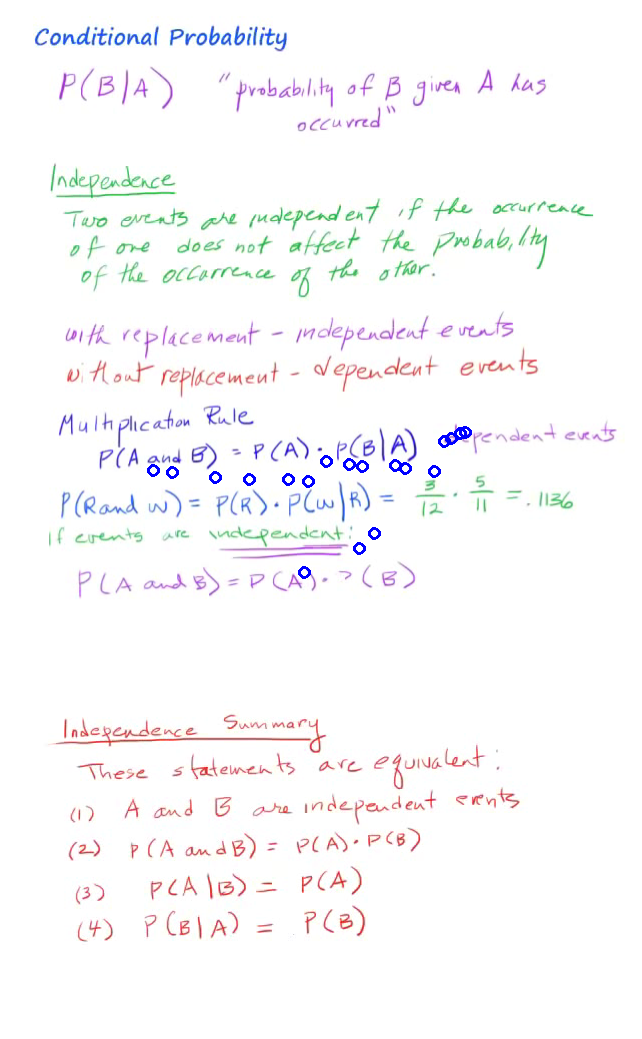 Conditional Probability
P(B|A) "probability of B given A has
occurred"
Independence
Two events are independent if the occurrence
of one does not affect the probability
of the occurrence of the other.
with replacement - independent events
without replacement - dependent events
Multiplication Rule
P(A and B) = P(A) · P(B|A) events
P(R and W) = P(R) · P(W|R) = 3/12 · 5/11 = .1136
if events are independent:
P(A and B) = P(A) · P(B)
Independence Summary
These statements are equivalent:
(1) A and B are independent events
(2) P(A and B) = P(A) · P(B)
(3) P(A|B) = P(A)
(4) P(B|A) = P(B)